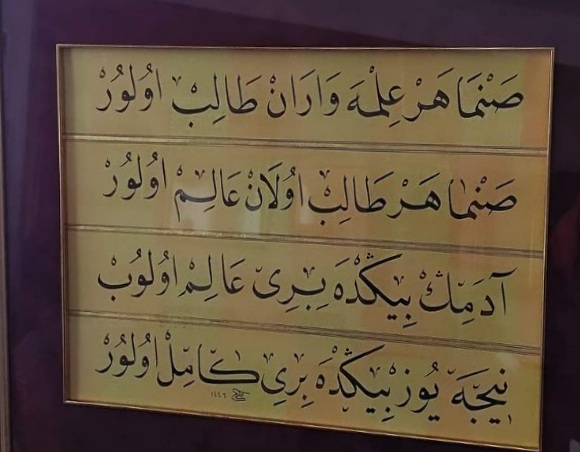 صَنْمَا هَرْ عِلْمَه وَارَانْ طَالِبْ اُولُورْ
صَنْمَا هَرْ طَالِبْ اُولَانْ عَالِمْ اُولُورْ
آدَمِڭ بِيڭْدَه بِرِى عَالِمْ اُولُوبْ
نِيجَه يُوزْ بِيڭْدَه بِرِى كَامِلْ اُولُورْ
١٤٤٦